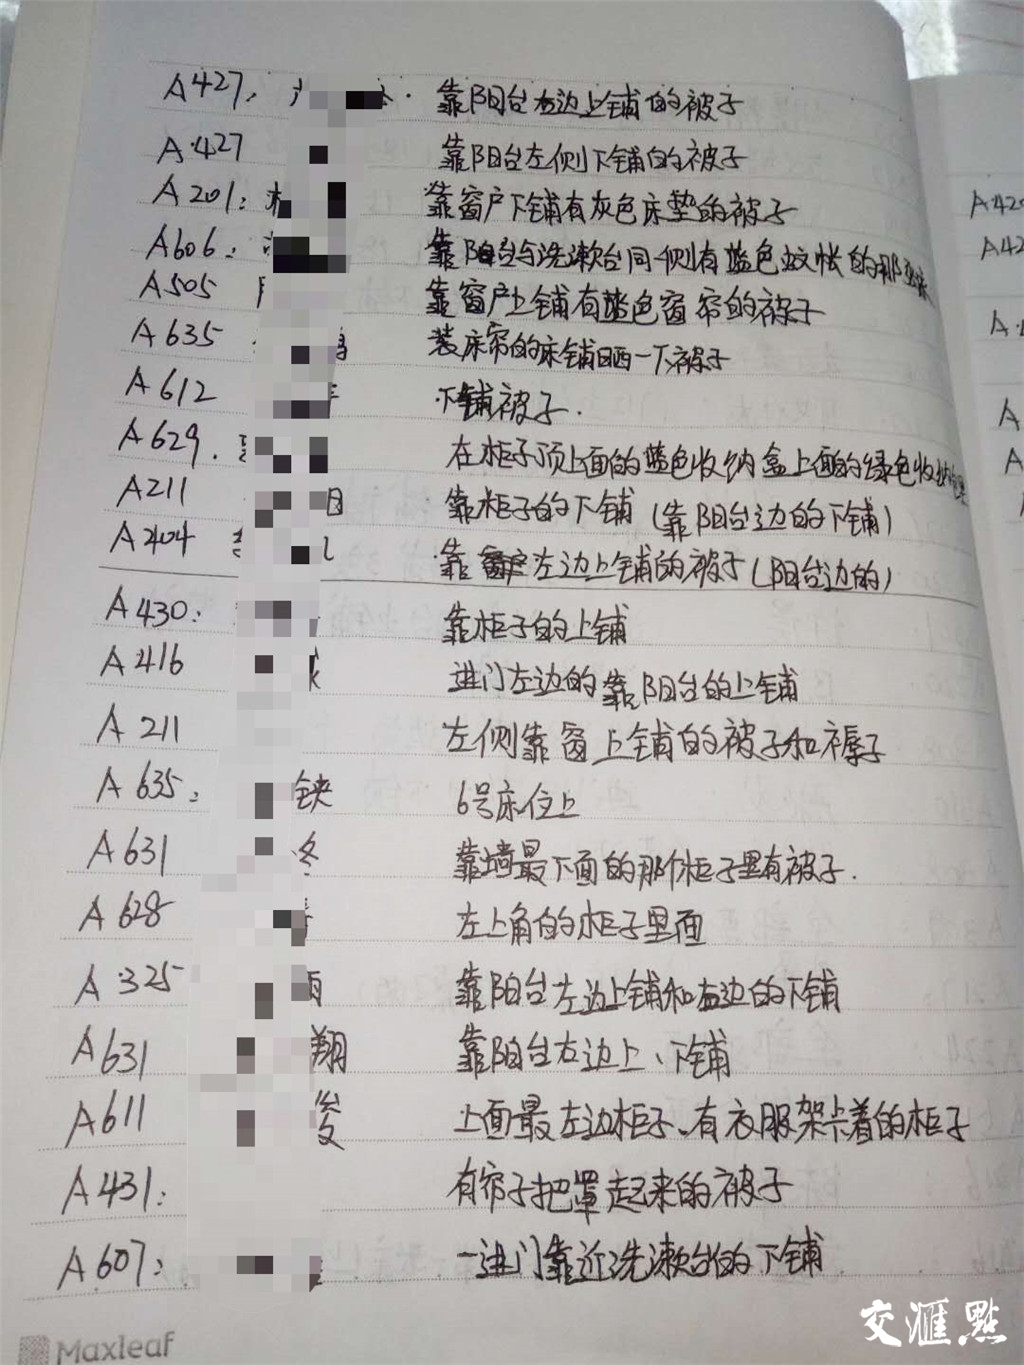 A427, 靠阳台右边上铺的被子
A427 靠阳台左侧下铺的被子
A201: 靠窗户下铺有灰色床垫的被子
A606: 靠阳台与洗漱台同一侧有蓝色蚊帐的那张床
A505 靠窗户上铺有蓝色窗帘的被子
A635 装床帘的床铺晒一下被子
A612 下铺被子.
A629. 在柜子顶上面的蓝色收纳盒上面的绿色收纳
A211 靠柜子的下铺(靠阳台边的下铺)
A404 靠窗户左边上铺的被子(阳台边的)
A430: 靠柜子的上铺
A416 进门左边的靠阳台的上铺
A211 左侧靠窗上铺的被子和褥子
A635: 铗 6号床位上
A631 冬 靠墙最下面的那个柜子里有被子.
A628 左上角的柜子里面
A325 雨 靠阳台左边上铺和右边的下铺
A631 翔 靠阳台右边上、下铺
A611 俊 上面最左边柜子、有衣服架卡着的柜子
A431: 有帘子把罩起来的被子
A607: 一进门靠近洗漱台的下铺
Maxleaf
交汇点
A420
A42
A
A
A